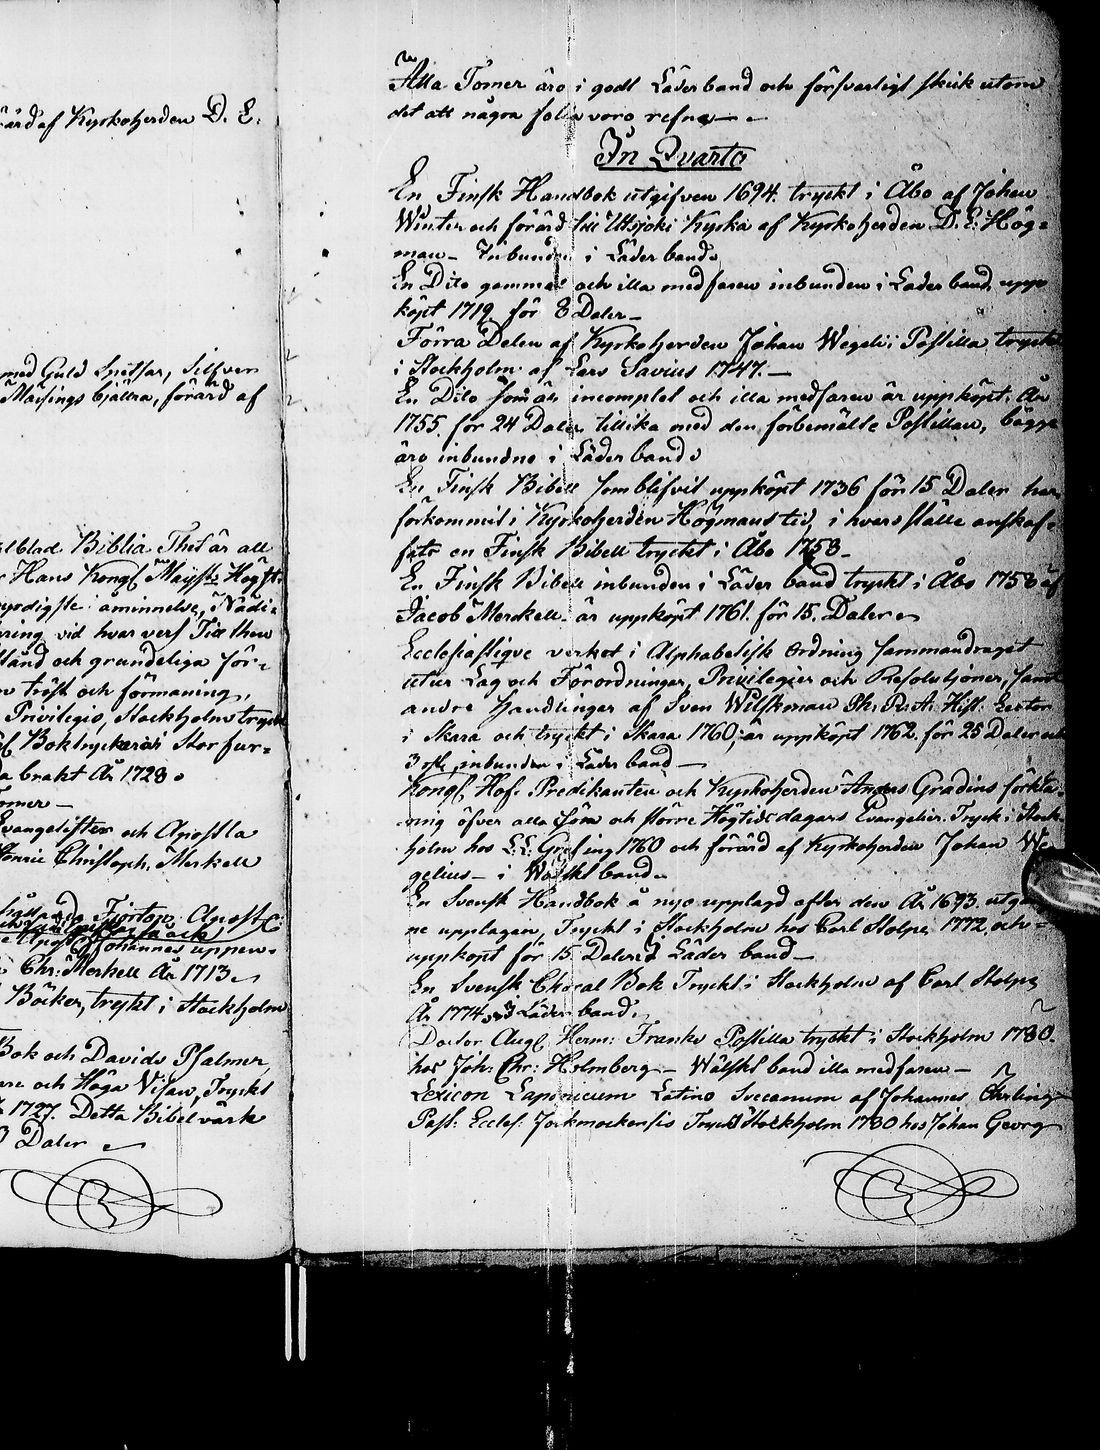 förärd af Kyrkoherden D. E:
med Guld Spitsar, Silfver
Mässings bjällra, förärd af
Biblia Thet är all
Hans Kongl Mayst:s Högst:
åminnelse, Nådi=
vid hvar vers Till then
och grundeliga för=
tröst och förmaning,
Privilegio, Stockholm tryckt
Boktryckerist Storfur=
a brakt År 1728.
Tomer
Evangelister och Apostla
Henric Christoph. Merkell
Fjortop Apostl:
Johannes uppen=
Chr: Merkell År 1713.
Böcker, tryckt i Stockholm
Bok och Davids Psalmer
och Höga Visan, Tryckt
1727. Detta Bibelvärk
Daler
Alla Tomer äro i godt Läderband och försvarligt skick utom
det att några folia voro refna.
In Qvarto
En Finsk Handbok utgifven 1694. tryckt i Åbo af Johan
Winter och förärd till Uttsjoki Kyrka af Kyrkoherden D. E: Hög=
man - Inbunden i Läderband.
En Dito gammal och illa medfaren inbunden i Läderband upp
köpt 1719 för 8 Daler -
Förra Delen af Kyrkoherden Johan Wegelii Postilla tryckt
i Stockholm af Lars Savius 1747. -
En Dito som är incomplet och illa medfaren är uppköpt År
1755. för 24 Daler tillika med den förbemälte Postillan, bägge
äro inbundne i Läderband.
En Finsk Bibell som blifvit uppköpt 1736 för 15 Daler har
förkommit i Kyrkoherden Högmans tid, i hvars ställe anskaf=
fats en Finsk Bibell tryckt i Åbo 1758 -
En Finsk Bibell inbunden i Läder band tryckt i Åbo 1758 af
Jacob Merckell. är uppköpt 1761. för 15. Daler.
Ecclesiastique verket i Alphabetisk ordning sammandraget
utur Lag och Förordningar, Privilegier och Resolutioner, samt
andre handlingar af Sven Wilskman Ph: R: A: Hist: Lector
i Skara och tryckt i Skara 1760, är uppköpt 1762. för 25 Daler och
3 inbunden i Läder band -
Kongl. Hof= Predikanten och Kyrkoherden Anders Gradins förkla=
ring öfver alla Sön och större Högtids dagars Evangelier. Tryckt i Stock=
holm hos L: L: Grefing 1760 och förärd af Kyrkoherden Johan We
gelius - i Wälskt band.
En Svensk Handbok å nyo upplagd efter den År 1693. utgå
ne upplagan, Tryckt i Stockholm hos Carl Stolpe 1772, och =
uppköpt för 15 Daler i Läder band -
En Svensk Choral Bok Tryckt i Stockholm af Carl Stolpe
År 1774. i Läder band.
Doctor Aug. Herm: Franks Postilla tryckt i Stockholm 1780.
hos Joh: Chr: Holmberg - Wälskt band illa medfaren -
Lexicon Lapponicum Latino Svecanum af Johannes Öhrling
Past: Eccles: Jockmockensis Tryckt i Stockholm 1780 hos Johan Georg